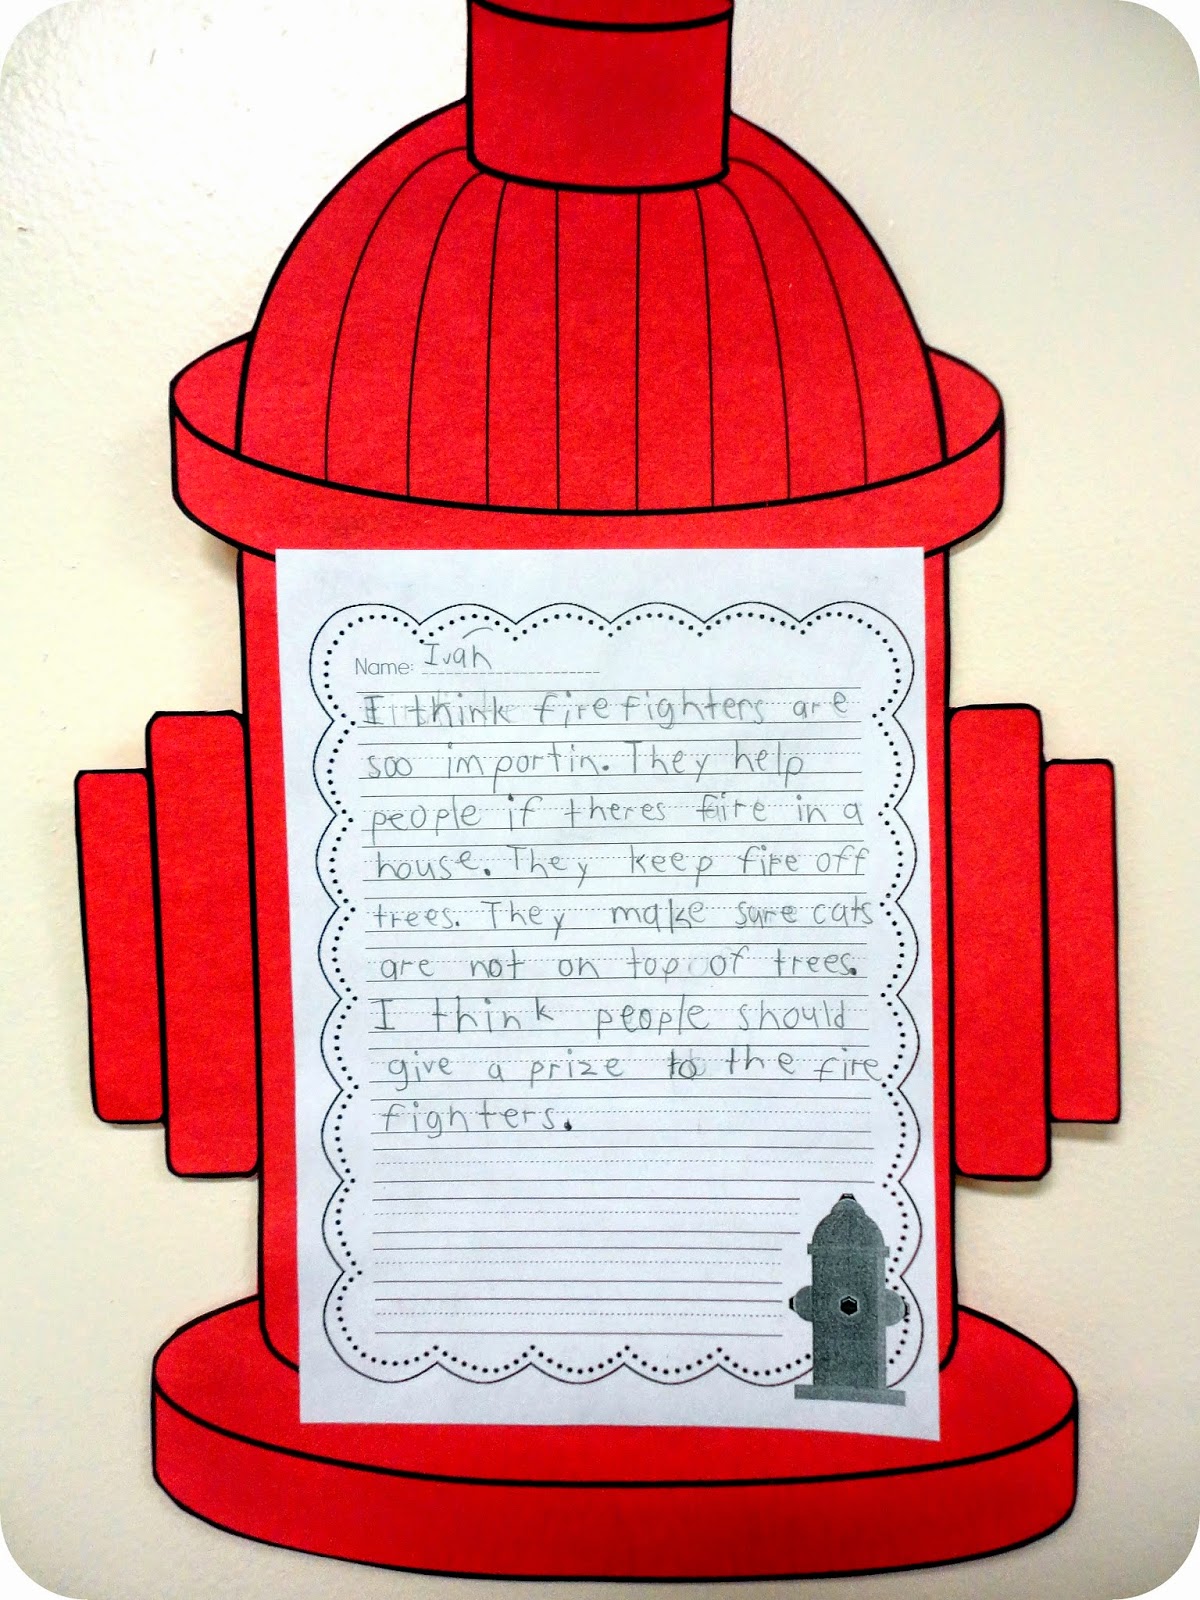 Name: Ivan
I think fire fighters are
soo importin. They help
people if theres faire in a
house. They keep fire off
trees. They make sure cats
are not on top of trees.
I think people should
give a prize to the fire
fighters.